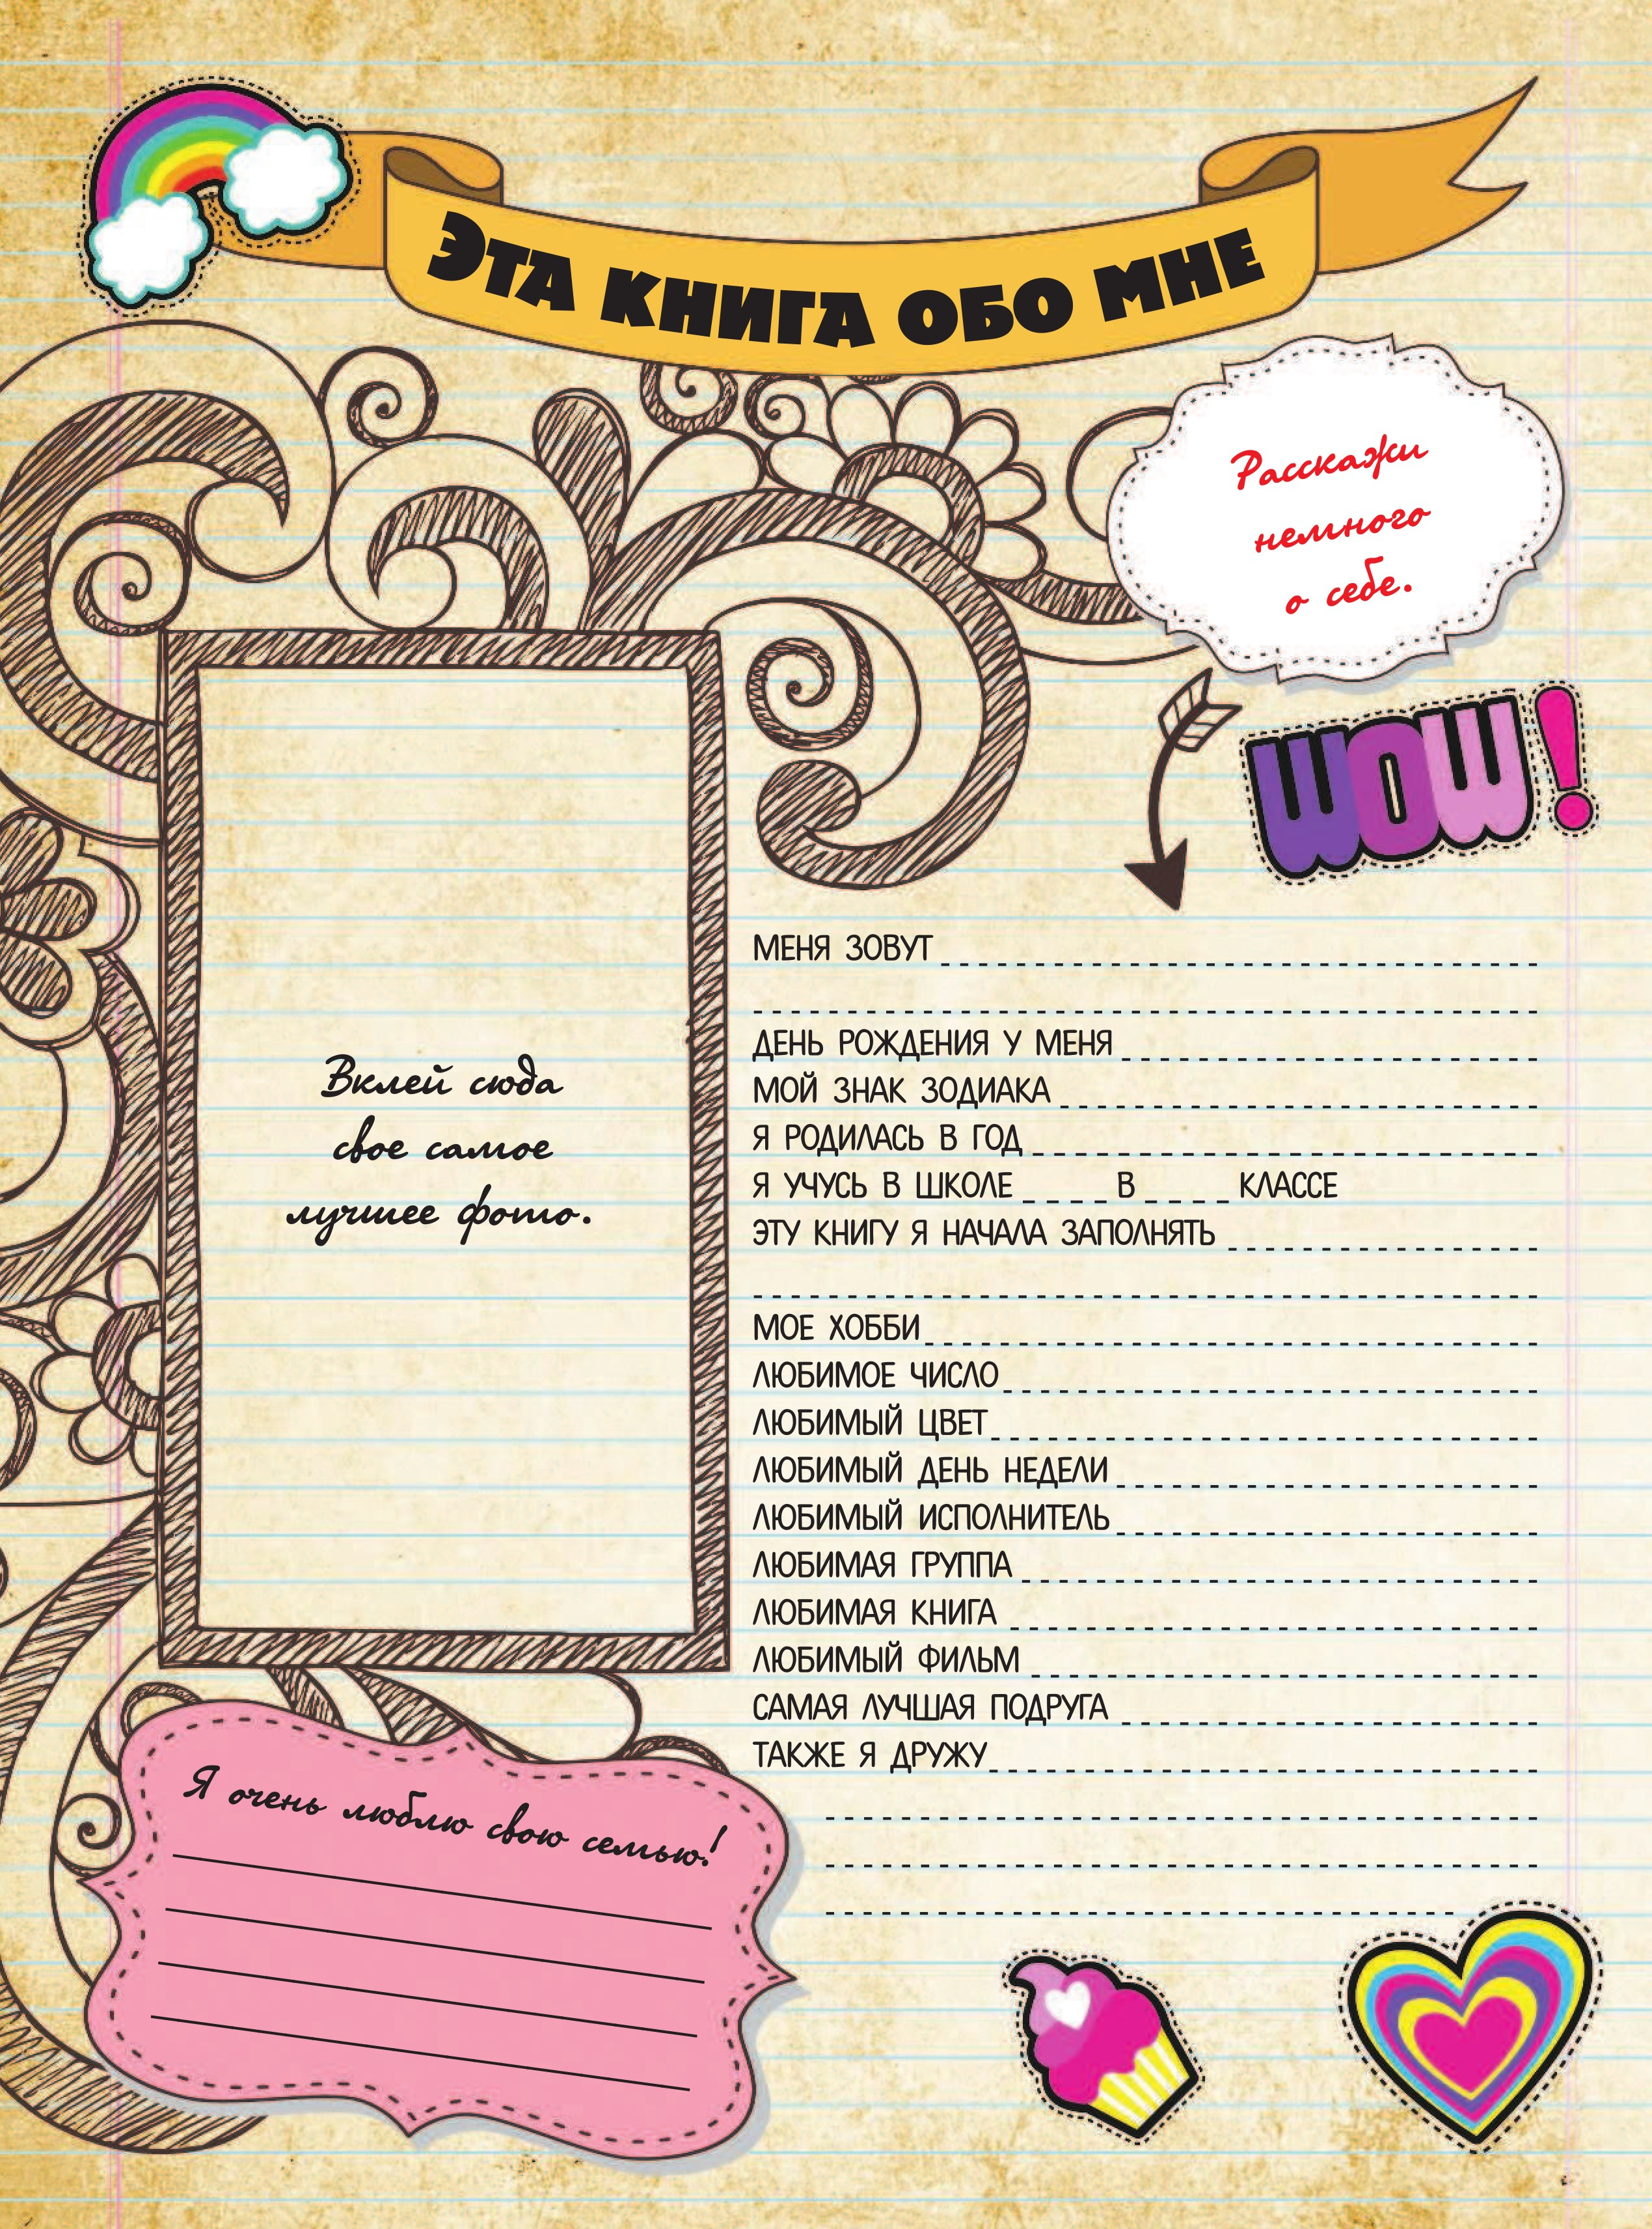 Эта книга обо мне
Расскажи
немного
о себе.
WOW!
Вклей сюда
свое самое
лучшее фото.
МЕНЯ ЗОВУТ
ДЕНЬ РОЖДЕНИЯ У МЕНЯ
МОЙ ЗНАК ЗОДИАКА
Я РОДИЛАСЬ В ГОД
Я УЧУСЬ В ШКОЛЕ _ _ _ _ В _ _ _ _ КЛАССЕ
ЭТУ КНИГУ Я НАЧАЛА ЗАПОЛНЯТЬ
МОЕ ХОББИ
ЛЮБИМОЕ ЧИСЛО
ЛЮБИМЫЙ ЦВЕТ
ЛЮБИМЫЙ ДЕНЬ НЕДЕЛИ
ЛЮБИМЫЙ ИСПОЛНИТЕЛЬ
ЛЮБИМАЯ ГРУППА
ЛЮБИМАЯ КНИГА
ЛЮБИМЫЙ ФИЛЬМ
САМАЯ ЛУЧШАЯ ПОДРУГА
ТАКЖЕ Я ДРУЖУ
Я очень люблю свою семью!